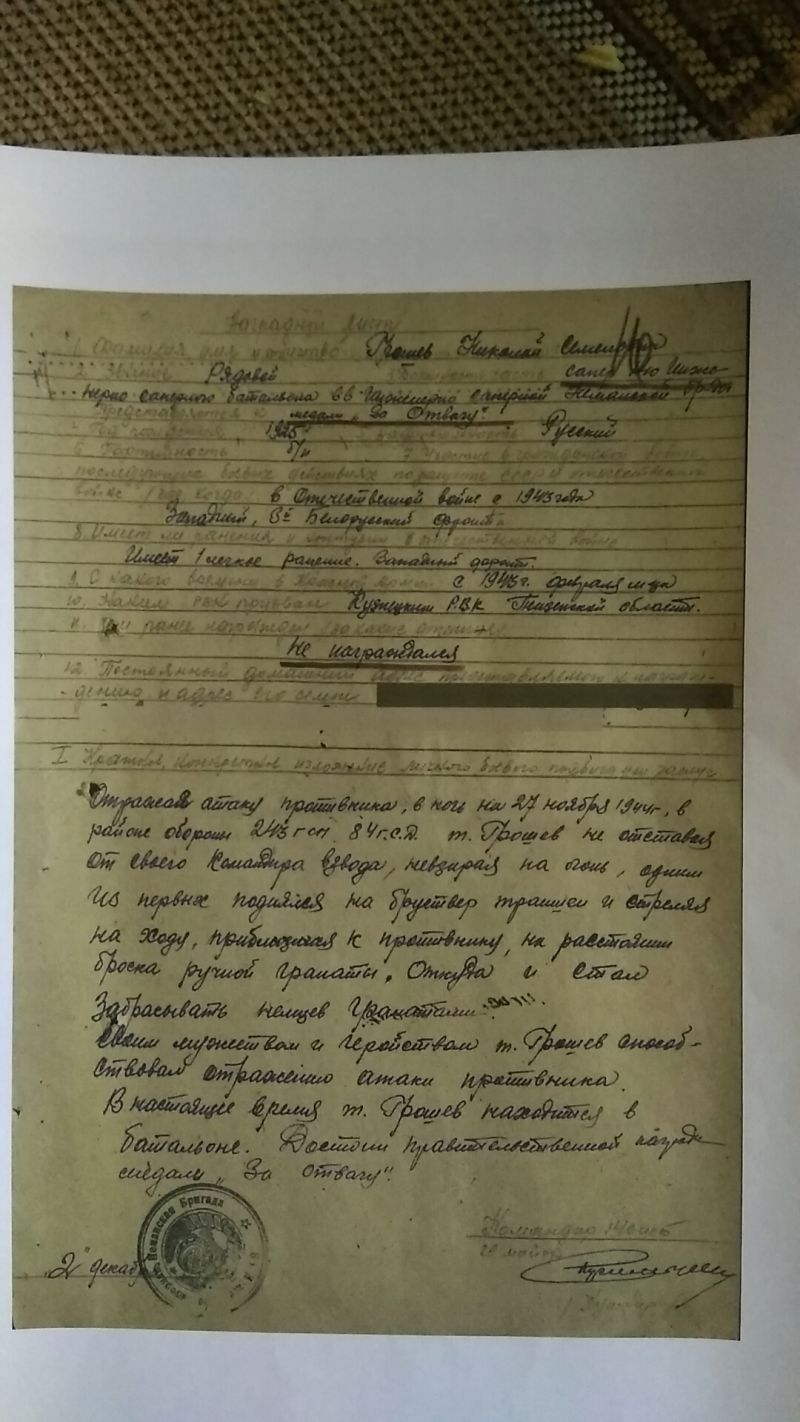 Наградной лист
1. Фамилия, имя и отчество Грошев Николай Семенович
2. Звание Рядовой сапер Инже-
нерно саперного батальона Инженерно саперной Неманской бригады
Представляется к медали „За Отвагу"
1925 Русский
6. Партийность б/п 7. Участие в гражданской войне,
последующих боевых действиях по защите СССР и отечественной
войне (где, когда) в Отечественной войне с 1943 года
Западный, 3й Белорусский фронт
8. Имеет ли ранения и контузии в отечественной войне
Имеет 1 легкое ранение. Западный фронт.
9. С какого времени в Красной армии с 1943г. февраля м-ца
10. Каким РВК призван Кузнецким РВК Пензенской области.
11. Чем ранее награжден (за какие отличия)
Не награждался
12. Постоянный домашний адрес представляемого к награж-
дению и адрес его семьи
I Краткое, конкретное изложение личного боевого подвига или заслуг
Отражая атаку противника, в ночь на 27 ноября 1944г, в
районе обороны 243 гсп 84 г.с.д. т. Грошев не отставая
от своего командира взвода, невзирая на огонь, одним
из первых поднялся на бруствер траншеи и стреляя
на ходу, приблизился к противнику, на расстоянии
броска ручной гранаты. Откуда и стал
забрасывать немцев гранатами.
Своим мужеством и геройством т. Грошев способ-
ствовал отражению атаки противника.
В настоящее время т. Грошев находится в
батальоне. Достоин правительственной награды
медали „За отвагу".
Неманская Бригада
Командир
„2" декабр